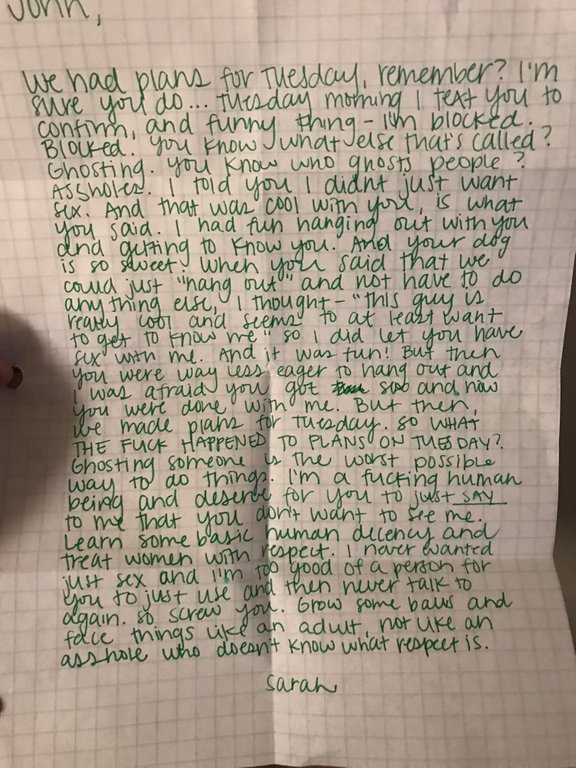 John,
We had plans for Tuesday, remember? I'm
sure you do... Tuesday morning I text you to
confirm, and funny thing - I'm blocked.
Blocked. You know what else that's called?
Ghosting. You know who ghosts people?
Assholes. I told you I didnt just want
sex. And that was cool with you, is what
you said. I had fun hanging out with you
and getting to know you. And your dog
is so sweet! When you said that we
could just "hang out" and not have to do
anything else, I thought - "this guy is
really cool and seems to at least want
to get to know me" so I did let you have
sex with me. And it was fun! But then
you were way less eager to hang out and
I was afraid you got sex and now
you were done with me. But then,
we made plans for Tuesday. So WHAT
THE FUCK HAPPENED TO PLANS ON TUESDAY?
Ghosting someone is the worst possible
way to do things. I'm a fucking human
being and deserve for you to just SAY
to me that you don't want to see me.
Learn some basic human decency and
treat women with respect. I never wanted
just sex and I'm too good of a person for
you to just use and then never talk to
again. So screw you. Grow some balls and
face things like an adult, not like an
asshole who doesn't know what respect is.
Sarah